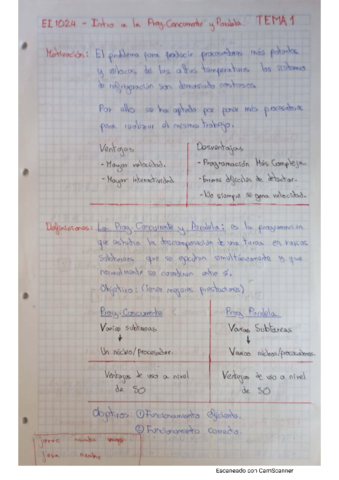 EI1024 - Intro a la Prog. Concurrente y Paralela. TEMA 1
Motivación: El problema para producir procesadores más potentes
y veloces de las altas temperaturas. los sistemas
de refrigeración son demasiado costosos.
Por ello se ha optado por poner más procesadores
para realizar el mismo trabajo.
Ventajas
- Mayor velocidad.
- Mayor interactividad.
Desventajas
- Programación Más Compleja.
- Errores difíciles de detectar.
- No siempre se gana velocidad.
Definiciones: La Prog. Concurrente y Paralela: es la programación
que estudia la descomposición de una tarea en varias
subtareas que se ejecutan simultáneamente y que
normalmente se comunican entre sí.
- Objetivo: (Tener mejores prestaciones)
Prog. Concurrente
Varias subtareas
↓
Un núcleo/procesador.
Ventajas de uso a nivel
de SO
Prog. Paralela.
Varias Subtareas
↓
Varios núcleos/procesadores
Ventajas de uso a nivel
de SO.
Objetivos: ① Funcionamiento eficiente.
② Funcionamiento correcto.
Escaneado con CamScanner